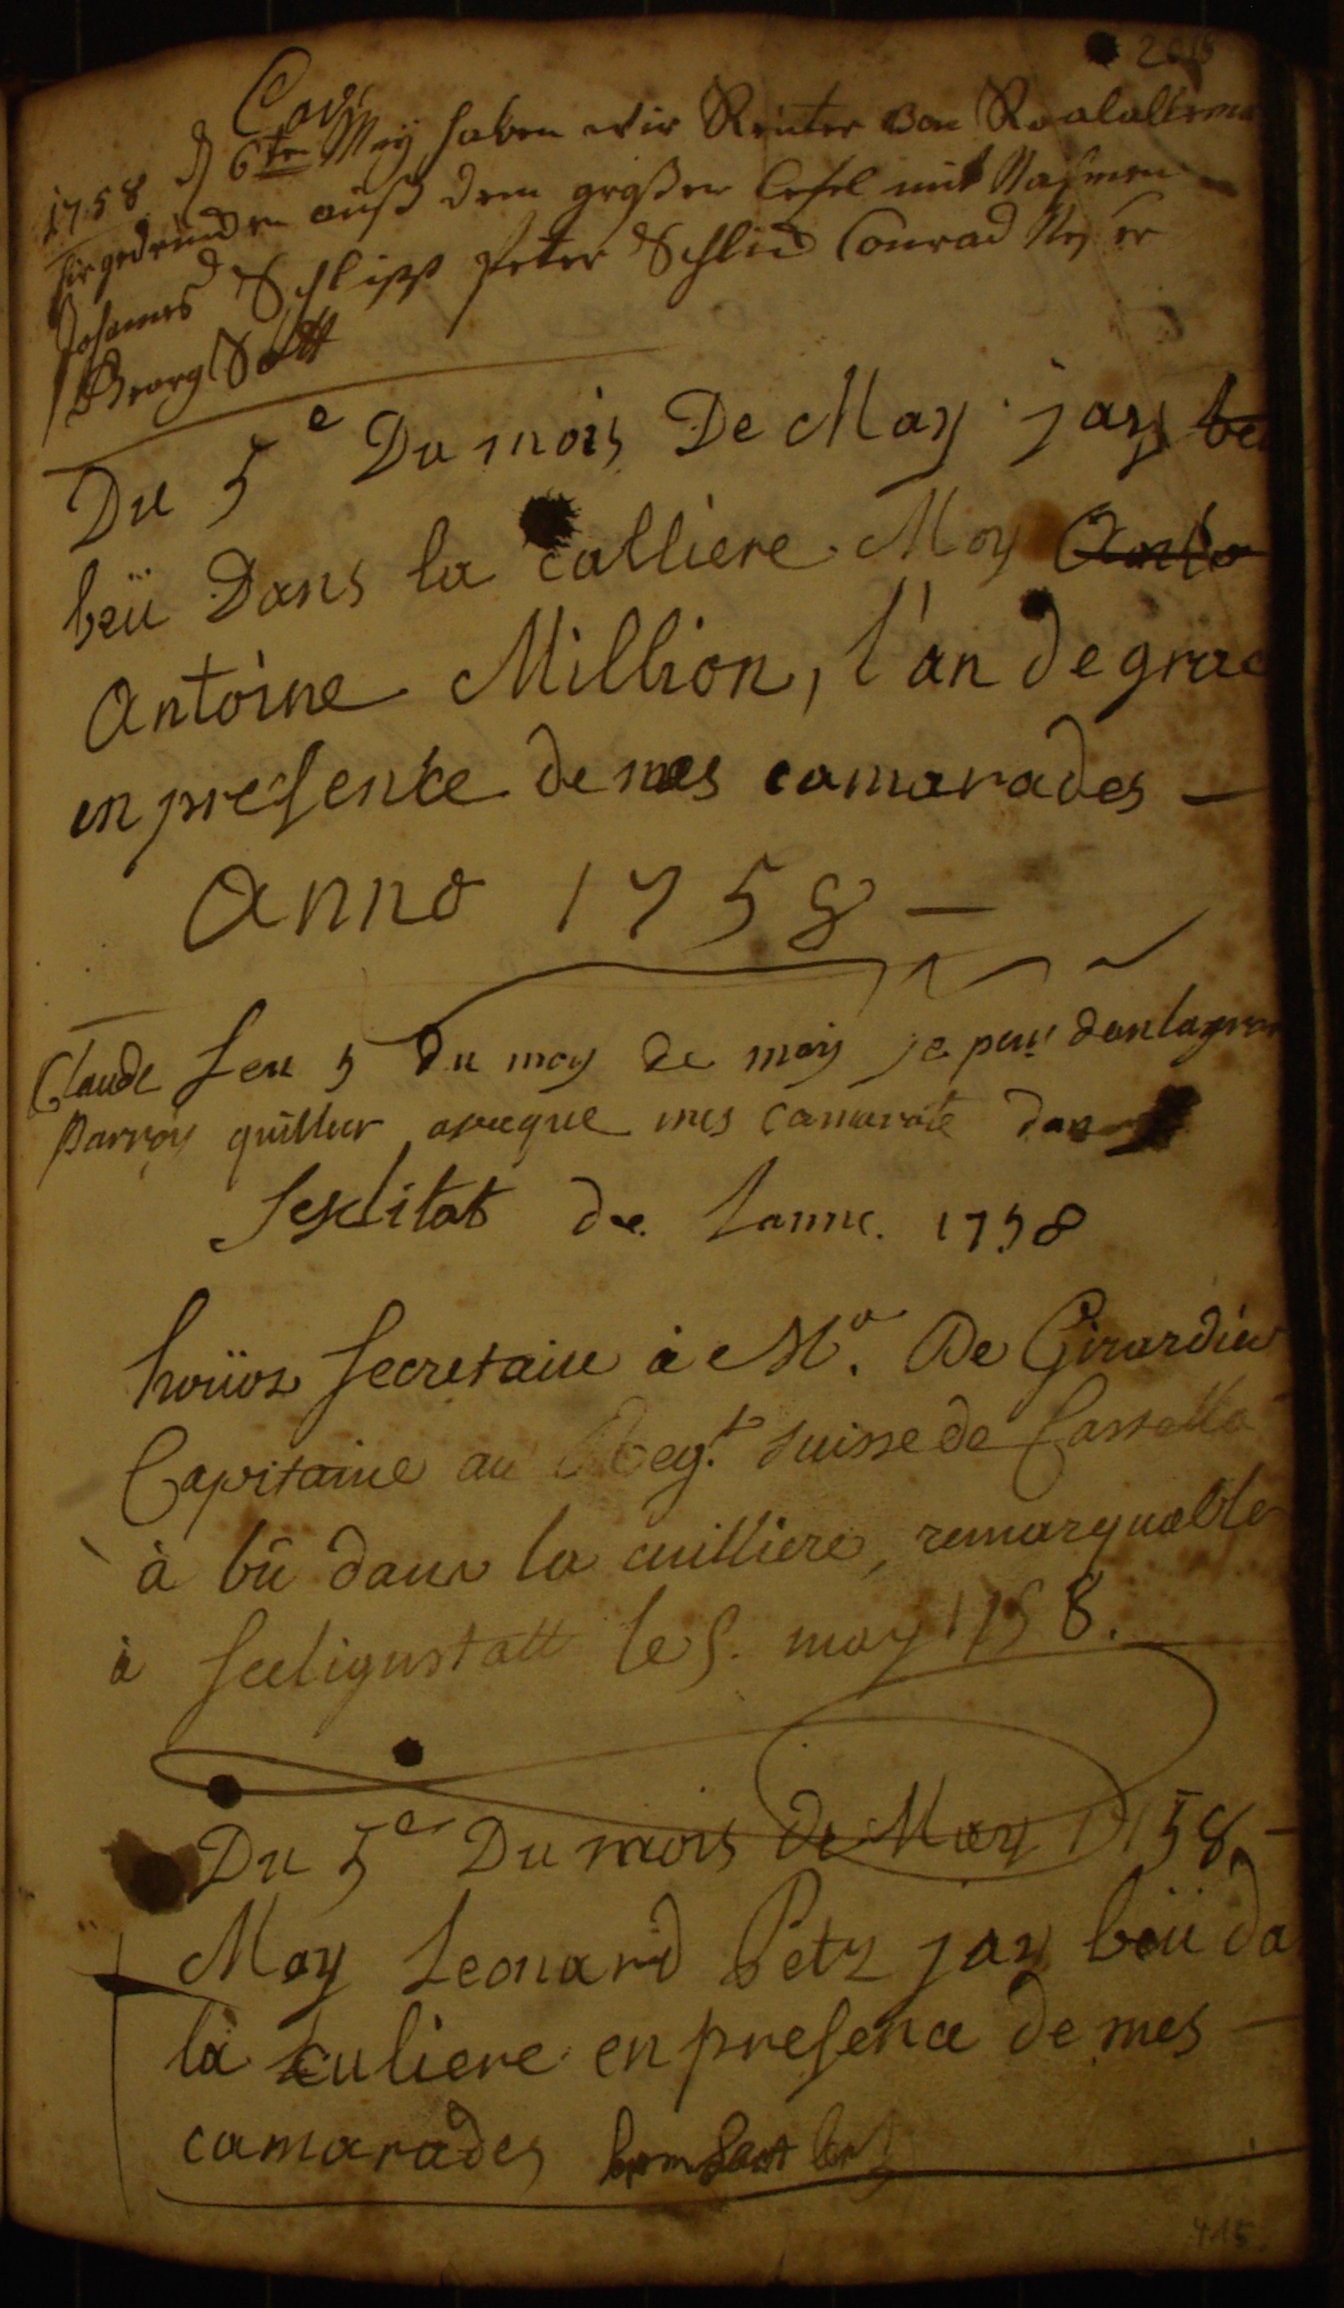 1758 d 6ten Meÿ haben wir Reuter von Roialallema
hir gedruncken auß dem großen lefel mit Nahmen
Johannes Schlipp Peter Schlid Conrad
Georg
Du 5e Du mois De May jay be
beü Dans la calliere Moy Anto
Antoine Million, l'an de grac
en presence de mes camarades
Anno 1758
Claude leu 5 du moy de may je peu dan la gran
Parroy quilleer avecque mes camarate dan
Seslitat de Lanne. 1758
secretaire à Mr. De Girardier
Capitaine au Regt. Suisse de Castella
à bû dans la cuilliere, remarquable
à Seeligustatt le 5. may 1758.
Du 5e Du mois de May 1758
Moy Leonard Petz jay beü da
la culiere en presence de mes
camarades
415